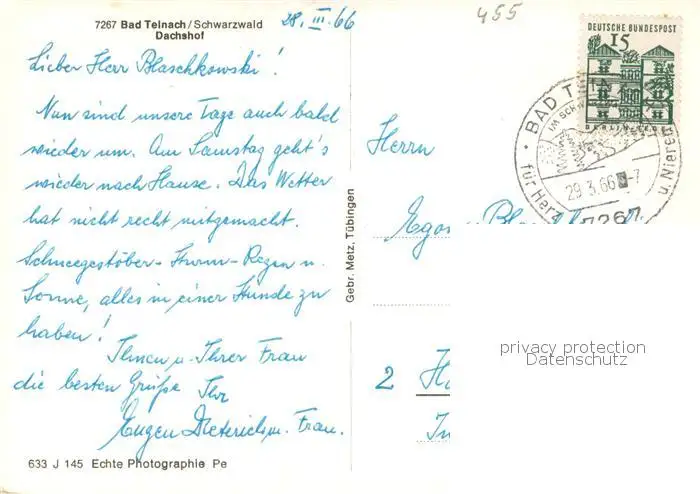 7267 Bad Teinach/Schwarzwald
Dachshof
28. III. 66
455
Lieber Herr Blaschkowski!
Nun sind unsere Tage auch bald
wieder um. Am Samstag geht's
wieder nach Hause. Das Wetter
hat nicht recht mitgemacht.
Schneegestöber - Sturm - Regen u.
Sonne, alles in einer Stunde zu
haben!
Ihnen u. Ihrer Frau
die besten Grüße Ihr
Eugen Dieterich u. Frau.
633 J 145 Echte Photographie Pe
Gebr. Metz, Tübingen
DEUTSCHE BUNDESPOST
15
BERLIN-TEGEL
BAD TEINACH
IM SCHW
29.3.66 -7
für Herz
u. Nieren
7267
Herrn
Egon
2
privacy protection
Datenschutz